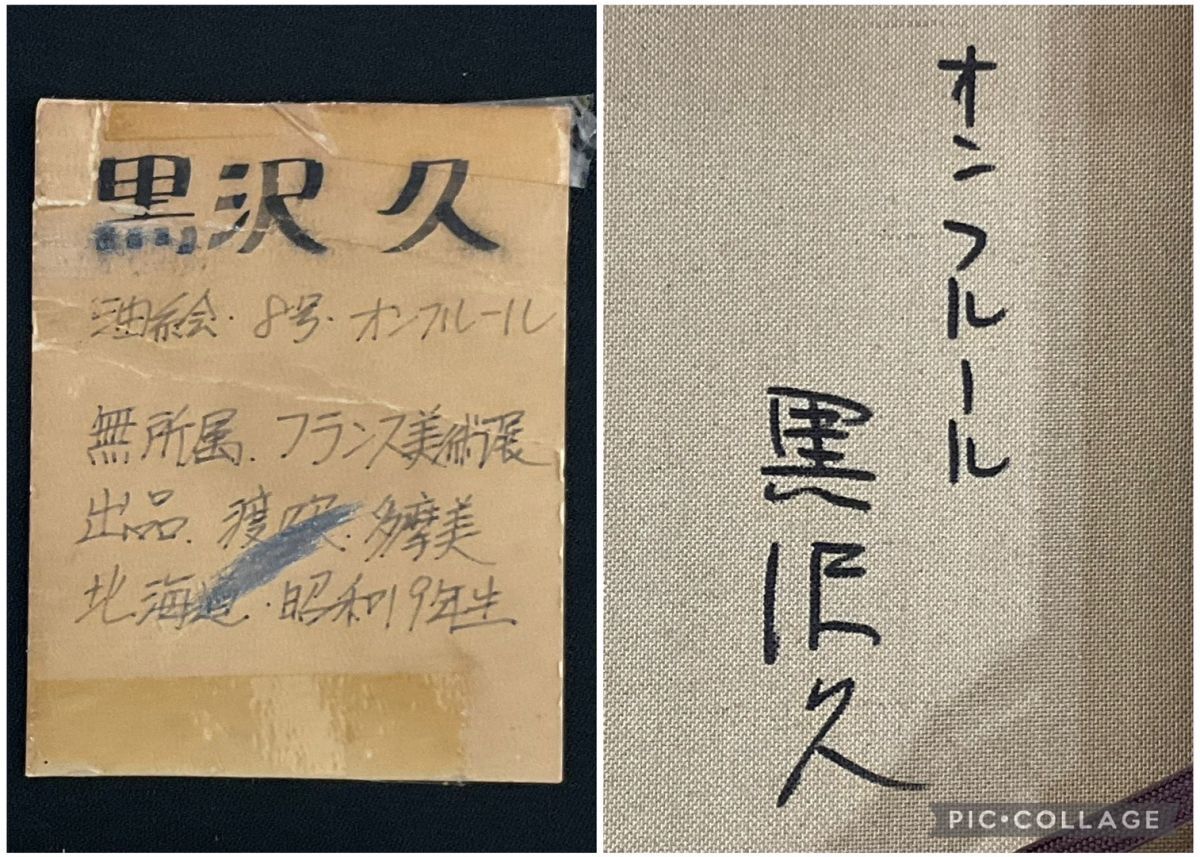 黒沢 久
油絵・8号・オンフルール
無所属. フランス美術展
出品. 渡欧. 多摩美
北海道・昭和19年生
オンフルール
黒沢久
PIC•COLLAGE